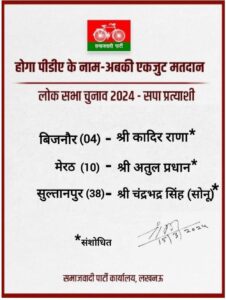 समाजवादी पार्टी
होगा पीडीए के नाम-अबकी एकजुट मतदान
लोक सभा चुनाव 2024 - सपा प्रत्याशी
बिजनौर (04) - श्री कादिर राणा*
मेरठ (10) - श्री अतुल प्रधान*
सुल्तानपुर (38)- श्री चंद्रभद्र सिंह (सोनू)*
*संशोधित
समाजवादी पार्टी कार्यालय, लखनऊ